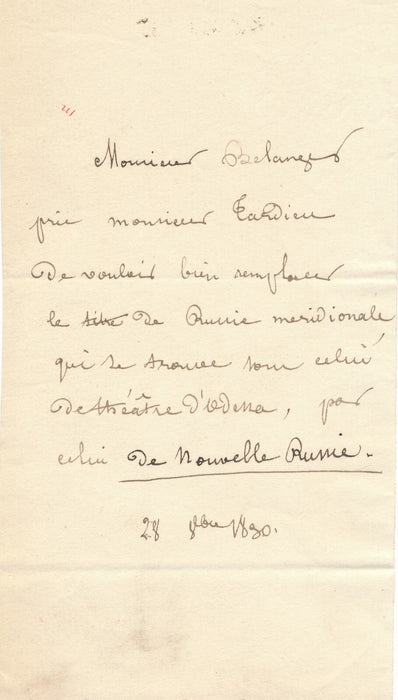 Monsieur Belanger
prie monsieur Tardieu
de vouloir bien remplacer
le titre de Russie meridionale
qui se trouve sous celui
de théâtre d'Odessa, par
celui de Nouvelle Russie.
28 8bre 1830.